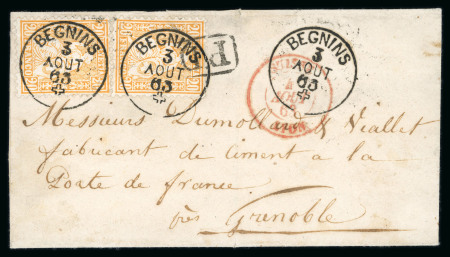 BEGNINS
3
AOUT
63
BEGNINS
3
AOUT
63
PD
BEGNINS
3
AOUT
63
Messieurs Dumollard & Viallet
fabricant di ciment a la
Porte de france
près Grenoble